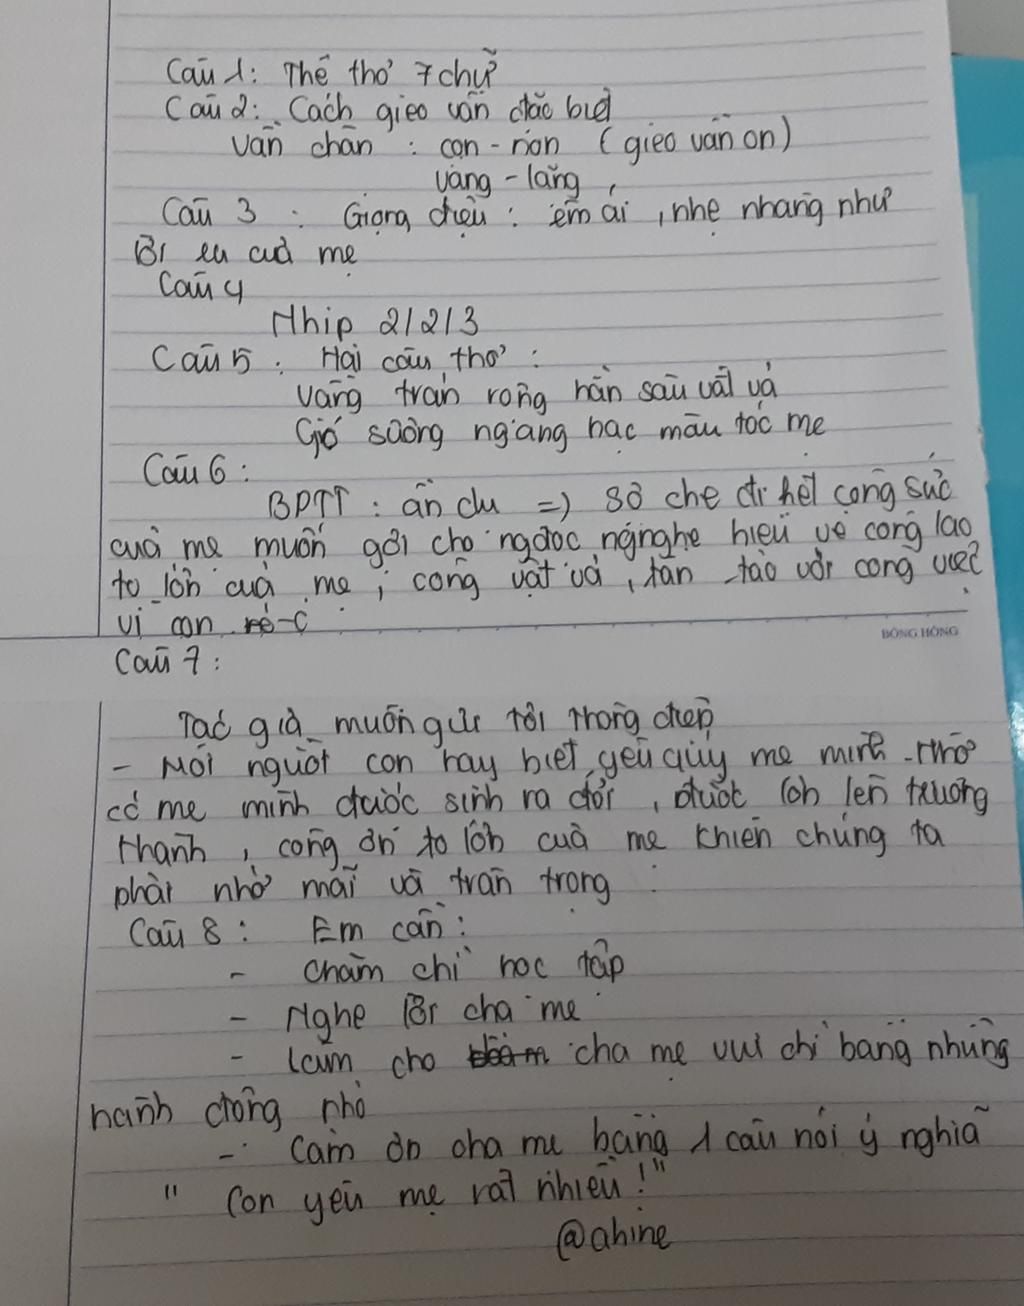 Câu 1: Thể thơ 7 chữ
Câu 2: Cách gieo vần đặc biệt
Vần chân : con - non (gieo vần on)
vàng - lặng
Câu 3 : Giọng điệu : êm ái, nhẹ nhàng như
lời ru của mẹ
Câu 4
Nhịp 2/2/3
Câu 5 : Hai câu thơ :
Vầng trán rộng hằn sâu vất vả
Gió sương ngang bạc mầu tóc mẹ
Câu 6 :
BPTT : ẩn dụ => sở che đi hết công sức
của mẹ muốn gởi cho ngđọc ngnghe hiểu về công lao
to lớn của mẹ ; công vất vả, tần tảo với công việc
vì con
BÔNG HỒNG
Câu 7 :
Tác giả muốn gửi tới thông điệp
- Mỗi người con hãy biết yêu quý mẹ mình. Nhờ
có mẹ mình được sinh ra đời, được lớn lên trưởng
thành, công ơn to lớn của mẹ khiến chúng ta
phải nhớ mãi và trân trọng
Câu 8 : Em cần :
- Chăm chỉ học tập
- Nghe lời cha mẹ
- Làm cho cha mẹ vui chỉ bằng những
hành động nhỏ
- Cảm ơn cha mẹ bằng 1 câu nói ý nghĩa
" Con yêu mẹ rất nhiều ! "
@ahine